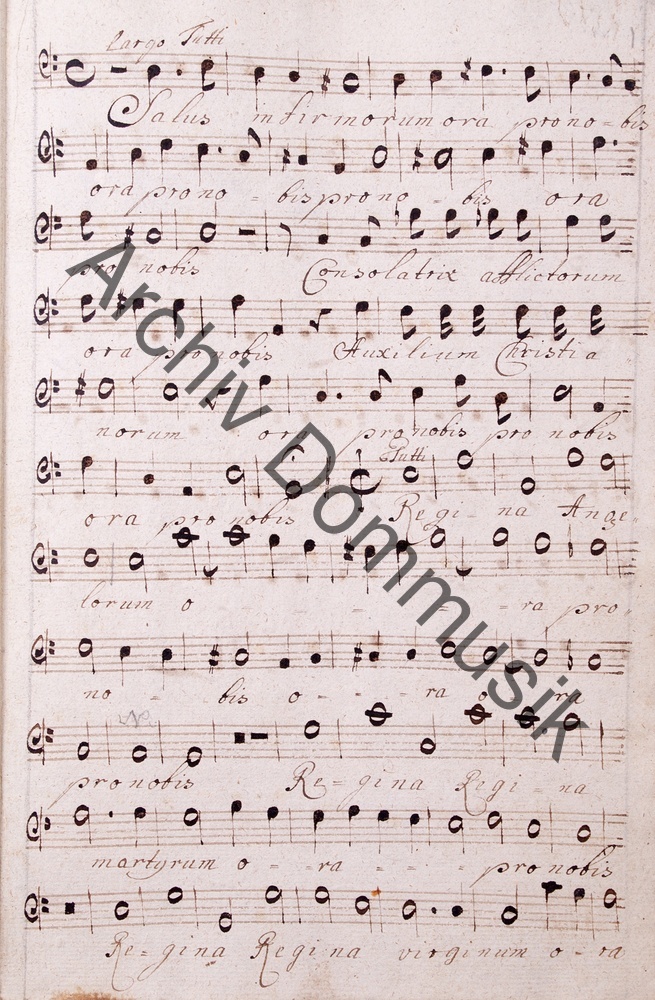 Largo Tutti
Salus infirmorum ora prono = bis
ora prono = bis prono = bis ora
pro nobis Consolatrix afflictorum
ora pro nobis Auxilium Christia =
norum ora pro nobis pro nobis
Tutti
ora pro nobis Regi - na Ange =
lorum o - - - - - ra pro =
no = bis o - - - ra o ra
pro nobis Re = gina Regi = na
martyrum o - - ra - - - pro nobis
Re = gina Regina virginum o - ra
Archiv Dommusik